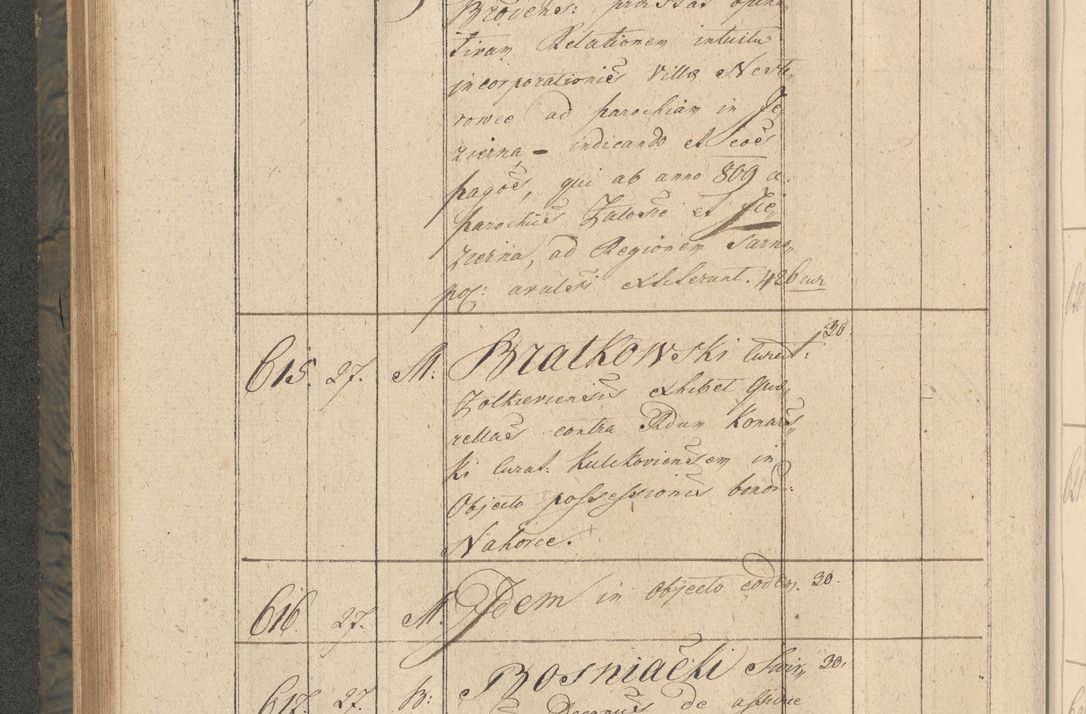 Brodens:
tivam Relationem intuitu
incorporationis Villa Neste„
rowce ad parochiam in Je„
zierna – indicando et eos
pagos, qui ab anno 809 a
parochiis Zalosce et Jie„
zierna, ad Regionem Tarno„
pol: avulsi extiterunt. 426 cur
615. 27. M: Bratkowski Curat: 30.
Zolkieviensis exhibet Que„
rellas contra Rdum Konars„
ki Curat. Kulikoviensem in
Objecto possessionis bonor:
Nahorce.
616. 27. M. Idem in objecto eodem. 30.
617. 27. B: Bosniacki 30.
Decanus de